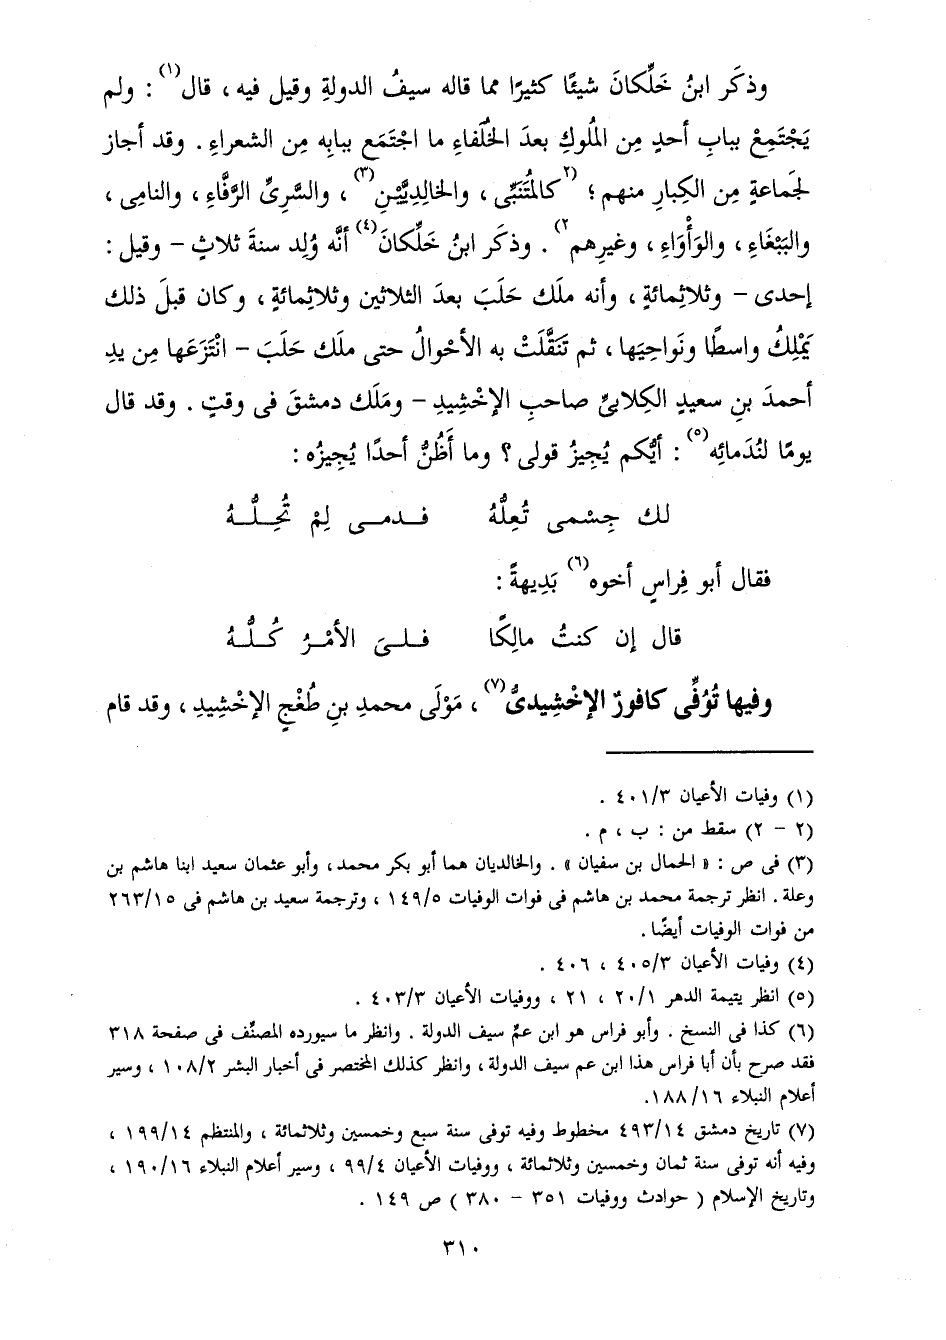 وذكَر ابنُ خَلِّكانَ شيئًا كثيرًا مما قاله سيفُ الدولةِ وقيل فيه ، قال(١) : ولم
يَجْتَمِعْ ببابِ أحدٍ مِن المُلوكِ بعدَ الخُلَفاءِ ما اجْتَمَع ببابِه مِن الشعراءِ . وقد أجاز
لجَماعةٍ مِن الكِبارِ منهم ؛ (٢كالمُتَنَبِّى ، والخالِدِيَّيْنِ(٣) ، والسَّرِىِّ الرَّفَّاءِ ، والنامِى ،
والبَبْغَاءِ ، والوَأْوَاءِ ، وغيرِهم٢) . وذكَر ابنُ خَلِّكانَ(٤) أنَّه وُلِد سنةَ ثلاثٍ - وقيل :
إحدى - وثلاثِمائةٍ ، وأنه ملَك حَلَبَ بعدَ الثلاثين وثلاثِمائةٍ ، وكان قبلَ ذلك
يَمْلِكُ واسطًا ونَواحِيَها ، ثم تَنَقَّلَتْ به الأحْوالُ حتى ملَك حَلَبَ - انْتَزَعَها مِن يدِ
أحمدَ بنِ سعيدٍ الكِلابىِّ صاحبِ الإخْشِيدِ - ومَلَك دمشقَ فى وقتٍ . وقد قال
يومًا لنُدَمائِه(٥) : أيُّكم يُجِيزُ قولى ؟ وما أَظُنُّ أحدًا يُجِيزُه :
لك جِسْمى تُعِلُّهُ فدمى لِمْ تُحِلُّهُ
فقال أبو فِراسٍ أخوه(٦) بَدِيهةً :
قال إن كنتُ مالِكًا فلىَ الأمْرُ كُلُّهُ
وفيها تُوُفِّى كافورٌ الإخْشِيدىُّ(٧) ، مَوْلَى محمدِ بنِ طُغْجٍ الإخْشِيدِ ، وقد قام
(١) وفيات الأعيان ٤٠١/٣ .
(٢ - ٢) سقط من : ب ، م .
(٣) فى ص : « الحمال بن سفيان » . والخالديان هما أبو بكر محمد، وأبو عثمان سعيد ابنا هاشم بن
وعلة . انظر ترجمة محمد بن هاشم فى فوات الوفيات ١٤٩/٥ ، وترجمة سعيد بن هاشم فى ٢٦٣/١٥
من فوات الوفيات أيضًا .
(٤) وفيات الأعيان ٤٠٥/٣ ، ٤٠٦ .
(٥) انظر يتيمة الدهر ٢٠/١ ، ٢١ ، ووفيات الأعيان ٤٠٣/٣ .
(٦) كذا فى النسخ . وأبو فراس هو ابن عمِّ سيف الدولة . وانظر ما سيورده المصنِّف فى صفحة ٣١٨
فقد صرح بأن أبا فراس هذا ابن عم سيف الدولة ، وانظر كذلك المختصر فى أخبار البشر ١٠٨/٢ ، وسير
أعلام النبلاء ١٨٨/١٦.
(٧) تاريخ دمشق ٤٩٣/١٤ مخطوط وفيه توفى سنة سبع وخمسين وثلاثمائة ، والمنتظم ١٩٩/١٤ ،
وفيه أنه توفى سنة ثمان وخمسين وثلاثمائة ، ووفيات الأعيان ٩٩/٤ ، وسير أعلام النبلاء ١٩٠/١٦ ،
وتاريخ الإسلام ( حوادث ووفيات ٣٥١ - ٣٨٠ ) ص ١٤٩ .
٣١٠